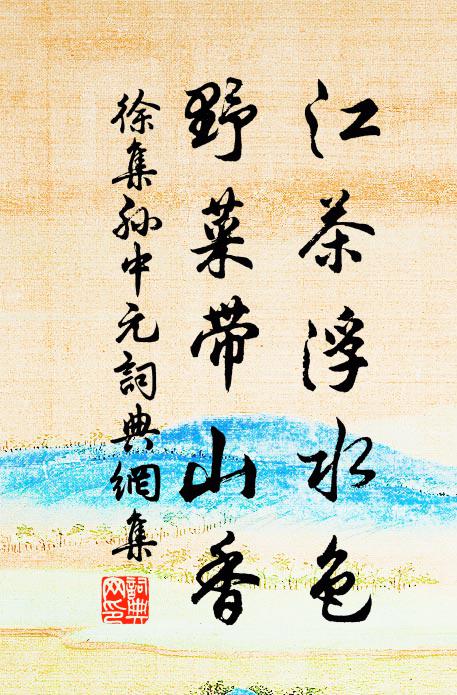 江茶浮水色
野菜带山香
徐集孙中元詞典網集
詞典